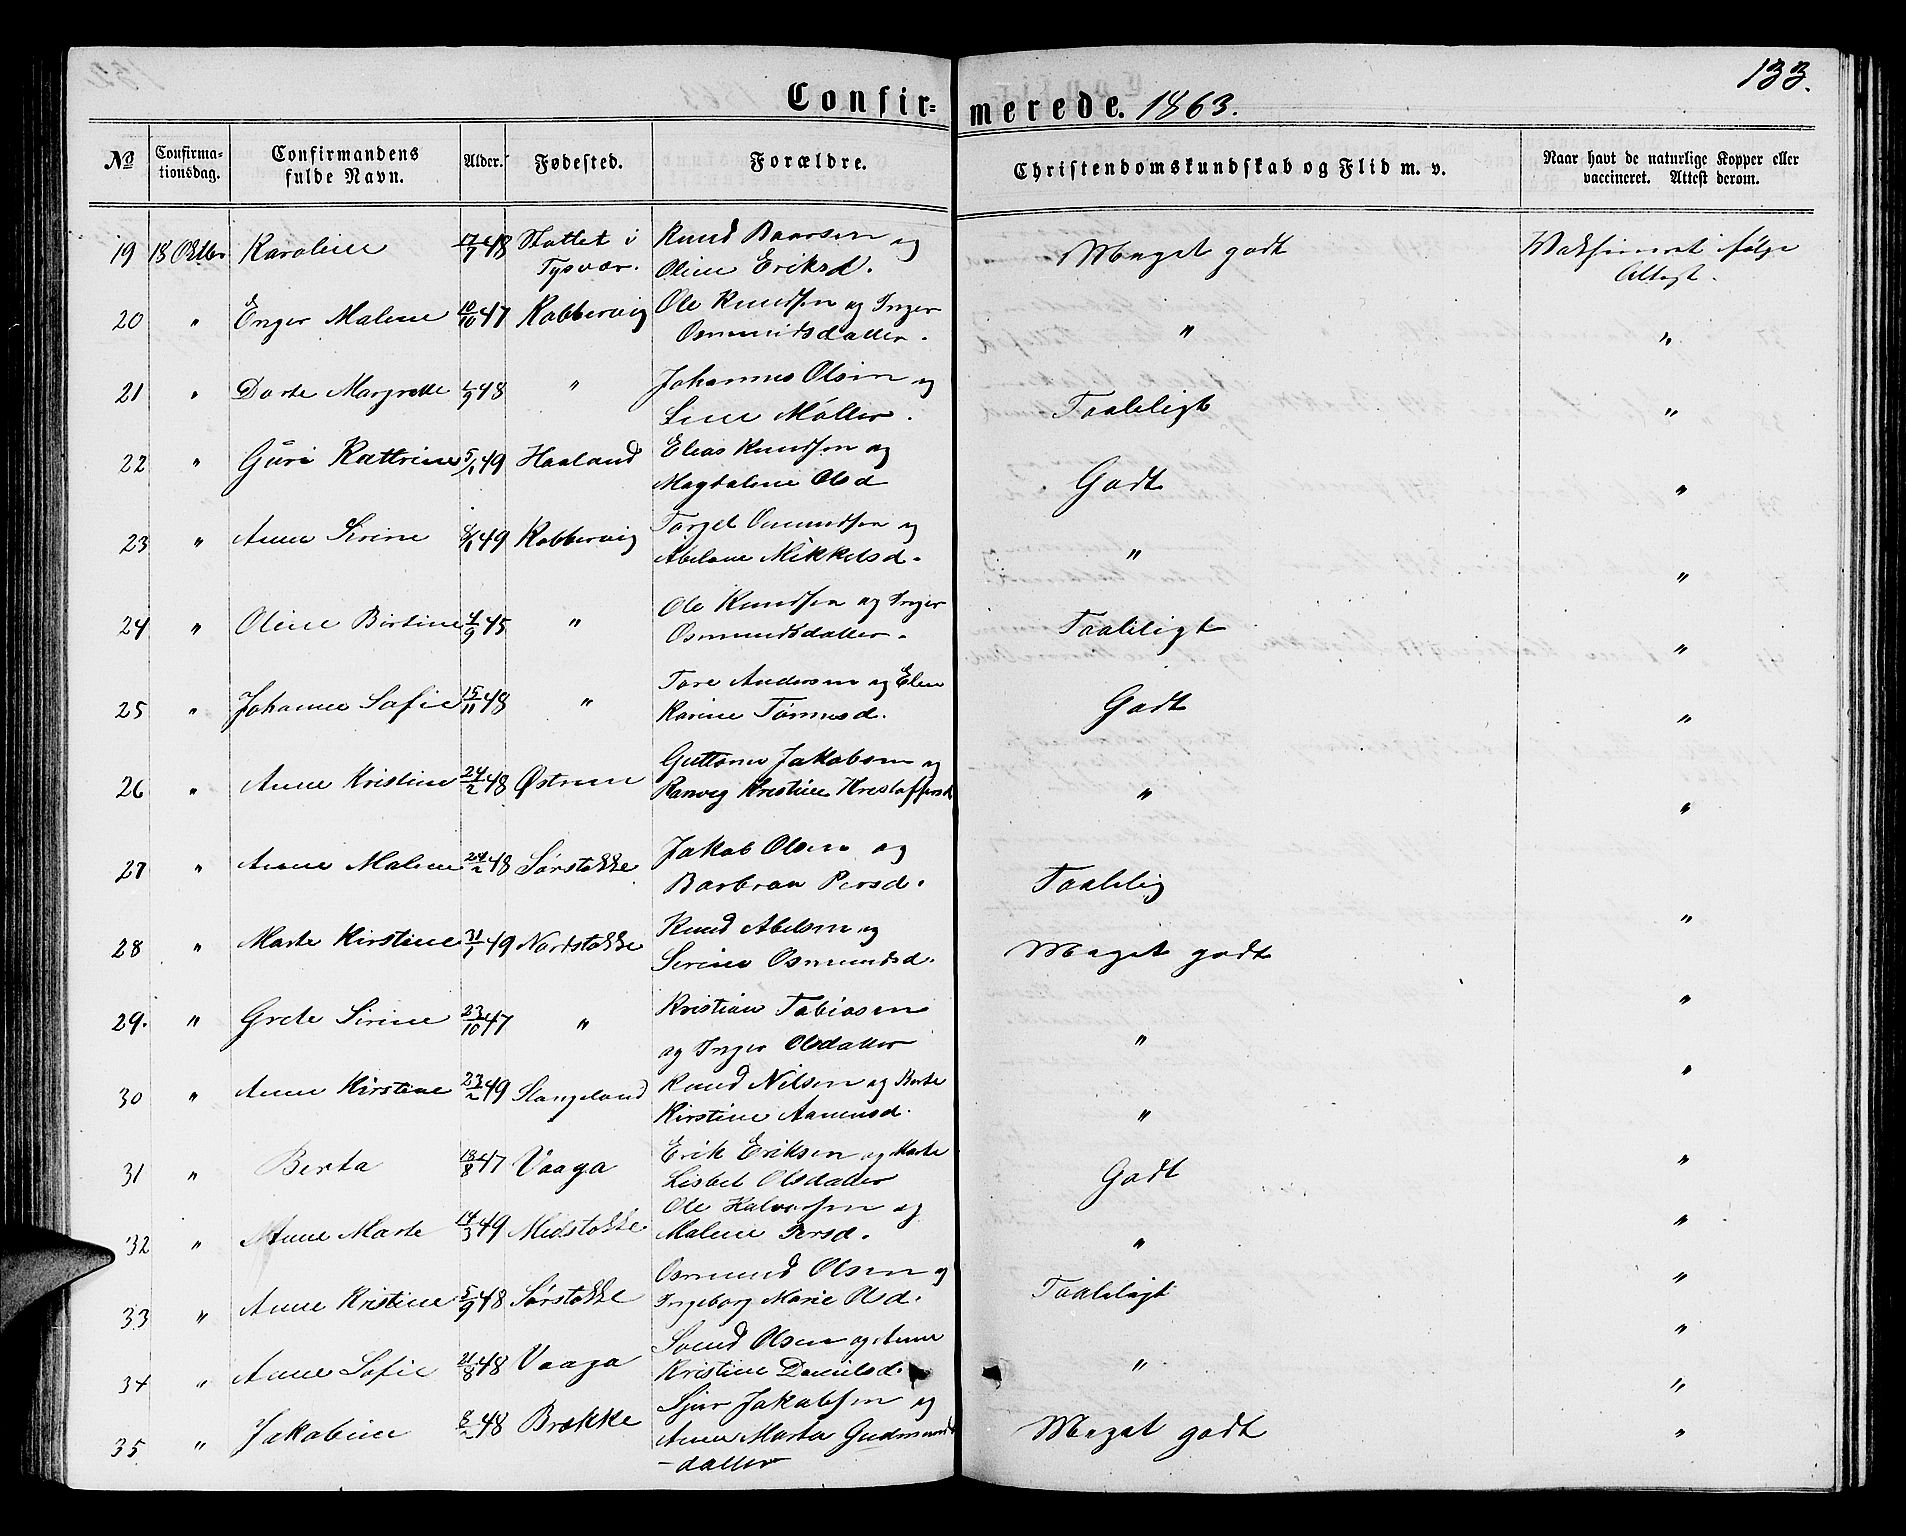 133.
Confir= merede. 1863.
No Confirma-
tionsdag. Confirmandens
fulde Navn. Alder. Fødested. Forældre. Christendomskundskab og Flid m. v. Naar havt de naturlige Kopper eller
vaccineret. Attest derom.
19 18 Oktbr Karoline 17/9 48 i Tysvær. Knud Baarsen og
Oline Eriksd. Meget godt Vaksineret ifølge
Attest.
20 " Enger Malene 10/10 47 Kobbervig Ole Knudsen og Inger
Osmundsdatter. " "
21 " Dorte Margrete 48 " Johannes Olsen og
Lene Møller. Taaleligt "
22 " Guri Kattrine 5/1 49 Haaland Elias Knudsen og
Magdalene Olsd Godt "
23 " Anne Sirine 49 Kobbervig Torgel Omundsen og
Abelone Mikkelsd. " "
24 " Oline Birtine 4/9 45 " Ole Knudsen og Inger
Osmundsdatter. Taaleligt "
25 " Johanne Sofie 15/11 48 " Tore Andersen og Elen
Karine Tørresd. Godt "
26 " Anne Kristine 24/2 48 Østrem Guttorm Jakobsen og
Ranveg Kristine Kristoffersd " "
27 " Anne Malene 24/2 48 Sørstokke Jakob Olsen og
Barbraa Persd. Taalelig "
28 " Marte Kirstine 31/1 49 Nordstokke Knud Abelsen og
Serine Osmundsd. Meget godt "
29. " Grete Sirine 23/10 47 " Kristian Tobiasen
og Inger Olsdatter " "
30 " Anne Kirstine 23/2 49 Stangeland Knud Nilsen og Berte
Kirstine Aamundsd. " "
31 " Berta 13/8 47 Vaaga Erik Eriksen og Marte
Lisbet Olsdatter Godt "
32 " Anne Marte 14/3 49 Midstokke Ole Halvorsen og
Malene Persd. " "
33 " Anne Kristine 5/9 48 Sørstokke Osmund Olsen og
Ingeborg Marie Olsd. Taaleligt "
34 " Anne Sofie 21/8 48 Vaaga Svend Olsen og Anne
Kristine Danielsd. " "
35 " Jakobine 8/2 48 Brække Sjur Jakobsen og
Anna Marta Gudmunds
-datter Meget godt "